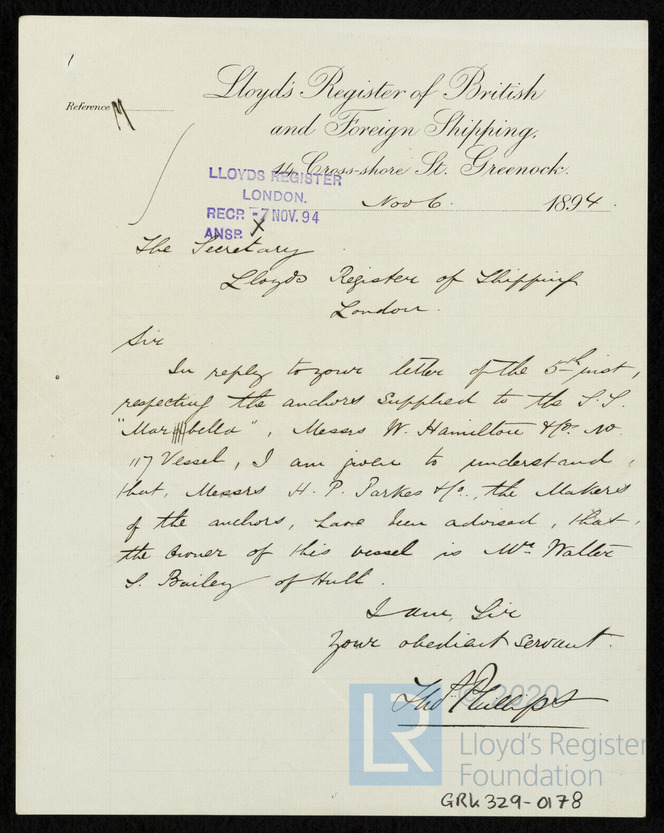 Reference M
Lloyd's Register of British
and Foreign Shipping.
14, Cross-shore St. Greenock.
LLOYDS REGISTER
LONDON.
RECD. -7 NOV. 94
ANSD. X
Nov 6. 1894.
The Secretary
Lloyds Register of Shipping
London.
Sir
In reply to your letter of the 5th inst,
respecting the anchors supplied to the S.S.
"Marbella", Messrs W. Hamilton & Co. No.
117 Vessel, I am given to understand
that, Messrs H. P. Parkes & Co., the Makers
of the anchors, have been advised, that
the Owner of this vessel is Mr. Walter
S. Bailey of Hull.
I am, Sir
Your obedient servant.
Thos. Phillips
© 2020
LR
Lloyd's Register
Foundation
GRK329-0178